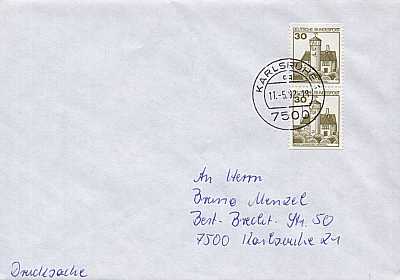 30
DEUTSCHE BUNDESPOST
KARLSRUHE 1
11.-5.92-19
30
7500
An Herrn
Bruno Menzel
Bert-Brecht-Str. 50
7500 Karlsruhe 21
Drucksache